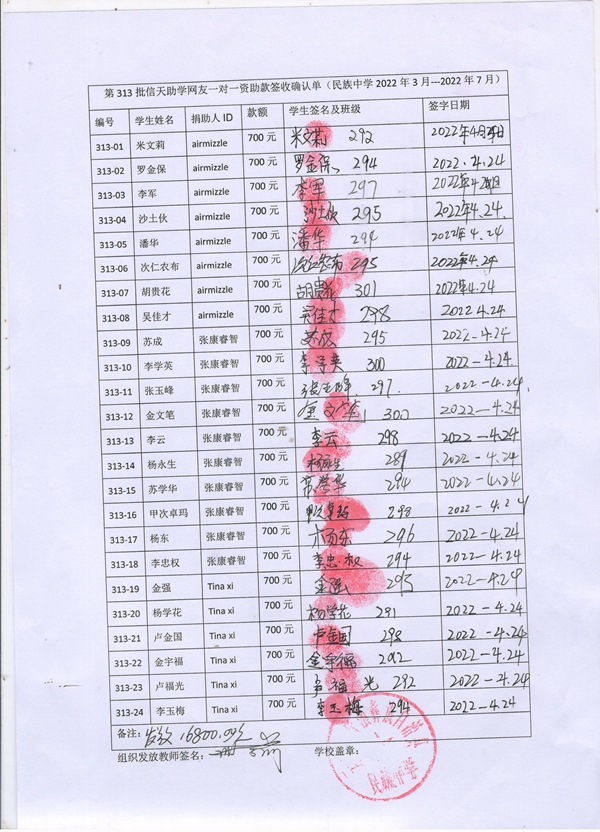 第 313 批信天助学网友一对一资助款签收确认单（民族中学 2022 年 3 月---2022 年 7 月）
编号 学生姓名 捐助人 ID 款额 学生签名及班级 签字日期
313-01 米文莉 airmizzle 700 元 米文莉 292 2022年4月24日
313-02 罗金保 airmizzle 700 元 罗金保 294 2022.4.24
313-03 李军 airmizzle 700 元 李军 297 2022年4.24日
313-04 沙土伙 airmizzle 700 元 沙土伙 295 2022年4.24.
313-05 潘华 airmizzle 700 元 潘华 294 2022年4.24
313-06 次仁农布 airmizzle 700 元 次仁农布 295 2022年4.24
313-07 胡贵花 airmizzle 700 元 胡贵花 301 2022年4.24
313-08 吴佳才 airmizzle 700 元 吴佳才 298 2022 4.24
313-09 苏成 张康睿智 700 元 苏成 295 2022-4.24
313-10 李学英 张康睿智 700 元 李学英 300 2022-4.24
313-11 张玉峰 张康睿智 700 元 张玉峰 297. 2022-4.24
313-12 金文笔 张康睿智 700 元 金文笔 300 2022-4.24
313-13 李云 张康睿智 700 元 李云 298 2022-4.24
313-14 杨永生 张康睿智 700 元 杨永生 289 2022-4.24
313-15 苏学华 张康睿智 700 元 苏学华 294 2022-4.24
313-16 甲次卓玛 张康睿智 700 元 甲次卓玛 298 2022-4.24
313-17 杨东 张康睿智 700 元 杨东 296 2022-4.24
313-18 李忠权 张康睿智 700 元 李忠权 294 2022-4.24
313-19 金强 Tina xi 700 元 金强 295 2022-4.24
313-20 杨学花 Tina xi 700 元 杨学花 291 2022-4.24
313-21 卢金国 Tina xi 700 元 卢金国 298 2022-4.24
313-22 金宇福 Tina xi 700 元 金宇福 292 2022-4.24
313-23 卢福光 Tina xi 700 元 卢福光 292 2022-4.24
313-24 李玉梅 Tina xi 700 元 李玉梅 294 2022-4.24
备注: 发放 16800.00元
组织发放教师签名： 学校盖章：
民族中学